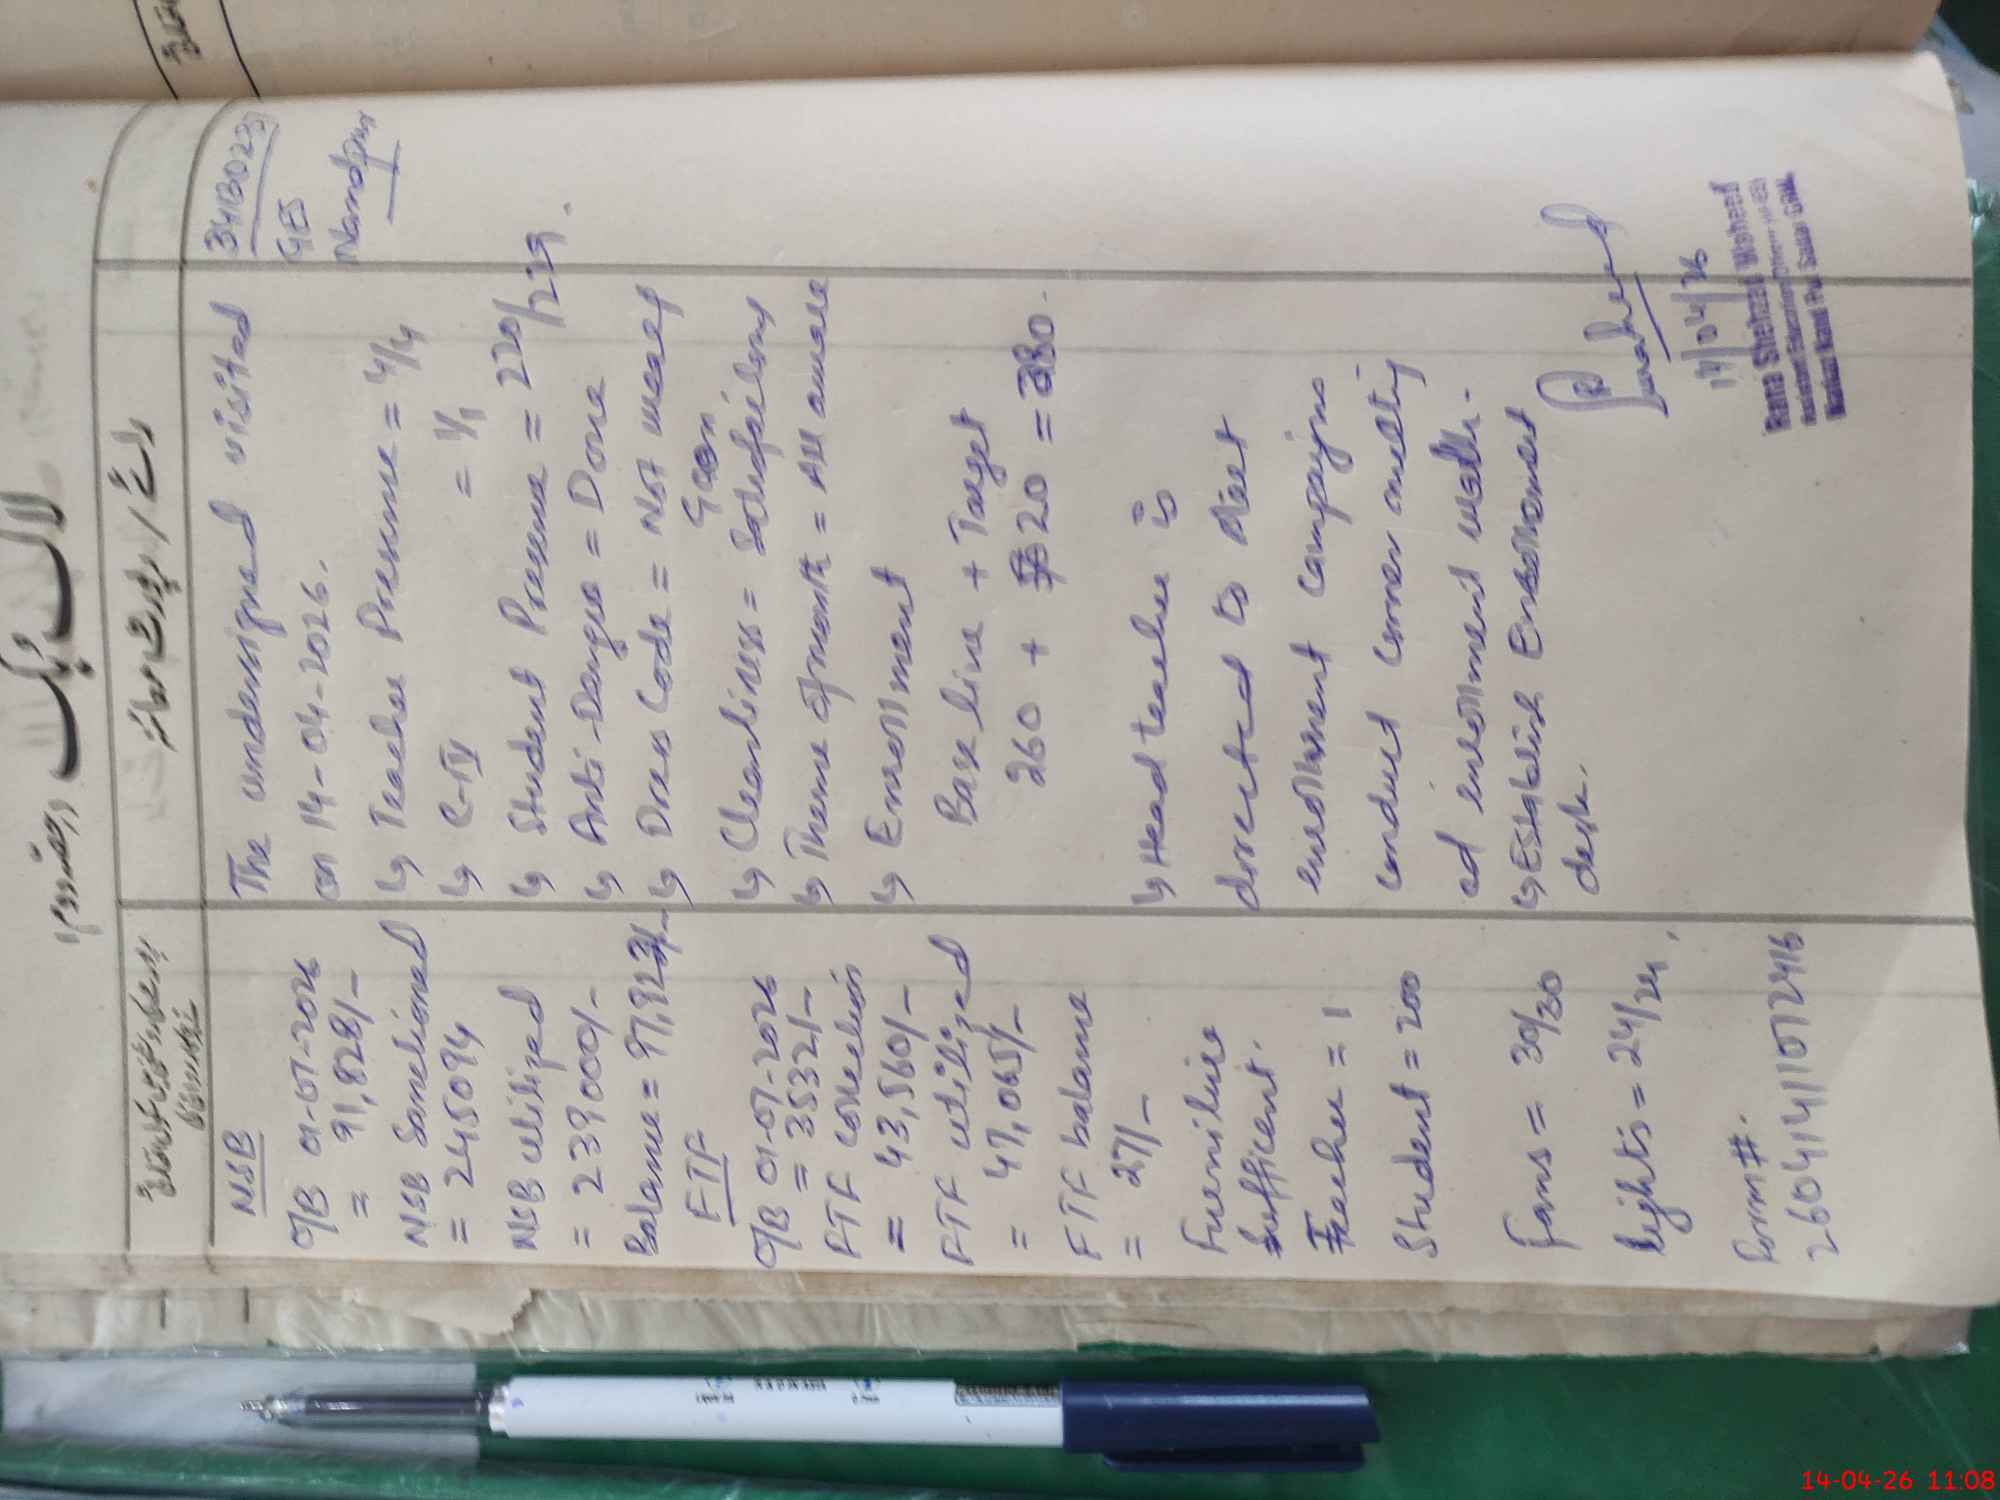 لاگ بک
رائے / رپورٹ معائنہ
34130223
GES
Nandpur
The undersigned visited
on 14-04-2026.
↳ Teacher Presence = 4/4
↳ C-IV = 1/1
↳ Student Presence = 220/239.
↳ Anti-Dengue = Done
↳ Dress Code = Not used
Gown
↳ Cleanliness = Satisfactory
↳ Theme of month = All aware
↳ Enrollment
Base line + Target
260 + 20 = 280.
↳ Head teacher is
directed to start
enrollment campaigns
conduct corner meeting
ad enrollment walk.
↳ Establish Enrollment
desk.
14/04/26
Rana Shehzad Waheed
Assistant Education Officer
NSB
O/B 01-07-2026
= 91,828/-
NSB Sanctioned
= 245094
NSB utilized
= 239000/-
Balance = 97,923/-
FTF
O/B 01-07-2026
= 3532/-
FTF collection
= 43,560/-
FTF utilized
= 47,065/-
FTF balance
= 27/-
Furniture
sufficent.
Teacher = 1
Student = 200
Fans = 30/30
lights = 24/24.
Form#.